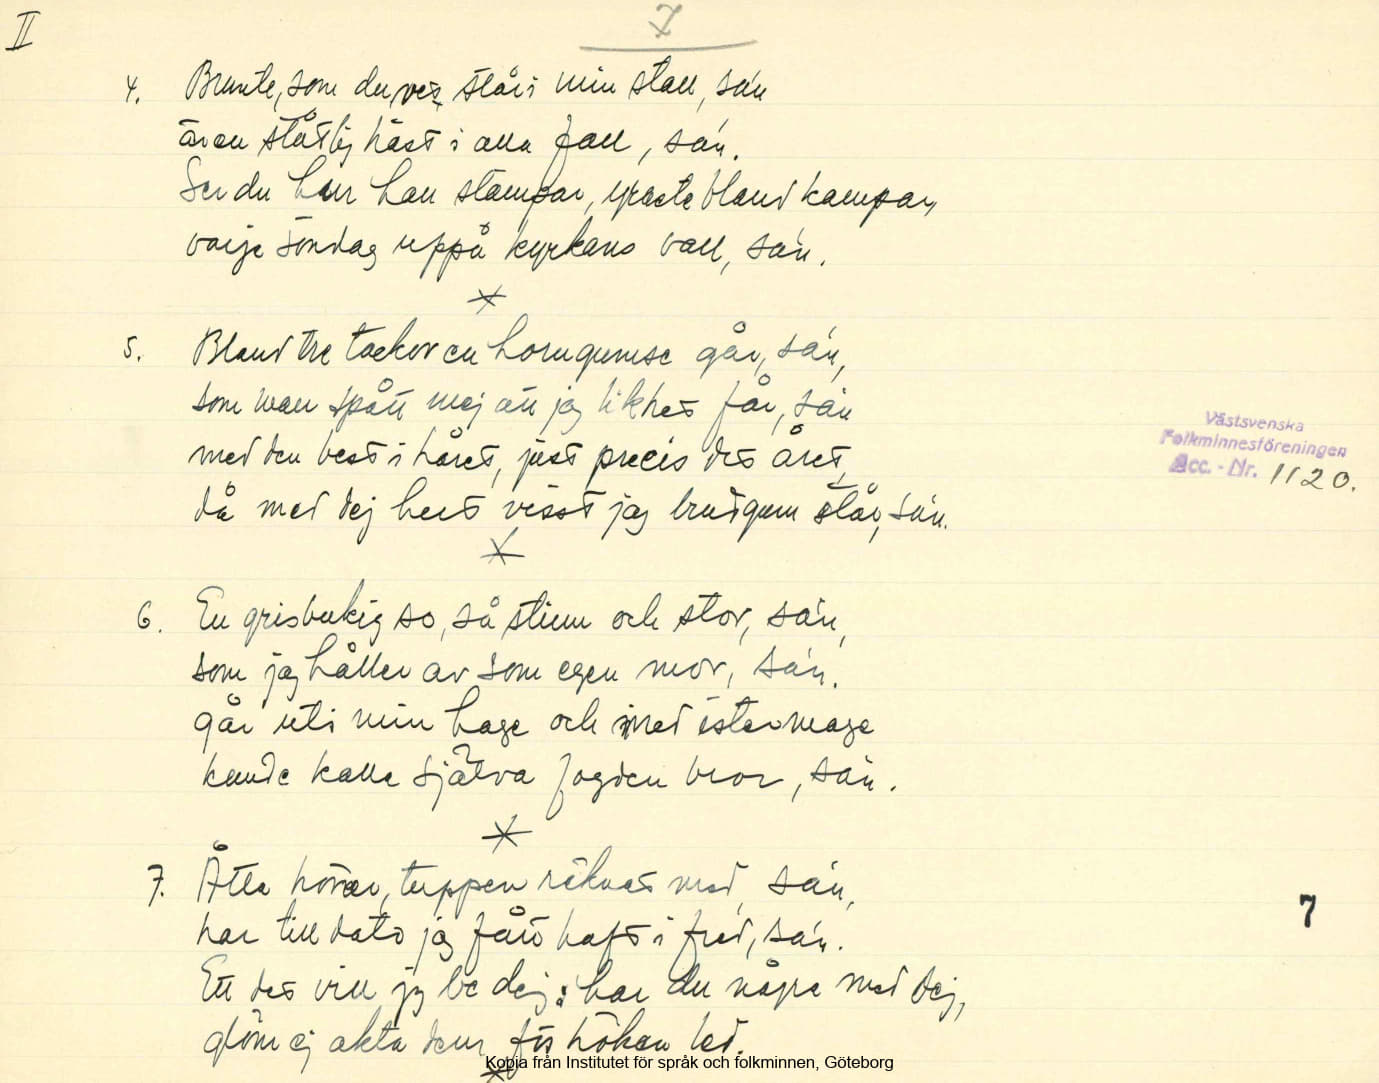 II
7
4. Brunte, som du vet står i min stall, sa'n
är en ståtlig häst i alla fall, sa'n.
Ser du hur han stampar, yraste bland kampar,
varje söndag uppå kyrkans vall, sa'n.
*
5. Bland tre tackor en horngumse går, sa'n,
som man spått mej att jag likhet får, sa'n
med den best i håret, just precis det året,
då med dej helt visst jag brudgum står, sa'n.
*
6. En grisbukig so, så stinn och stor, sa'n,
som jag håller av som egen mor, sa'n.
går uti min hage och med istermage
kunde kalla själva fogden bror, sa'n.
*
7. Åtta hönor, tuppen räknat med, sa'n,
har till dato jag fått haft i fred, sa'n.
Ett det vill jag be dej: har du några med dej,
glöm ej akta dem för höken led.
*
Västsvenska
Folkminnesföreningen
Acc. - Nr. 1120.
7
Kopia från Institutet för språk och folkminnen, Göteborg